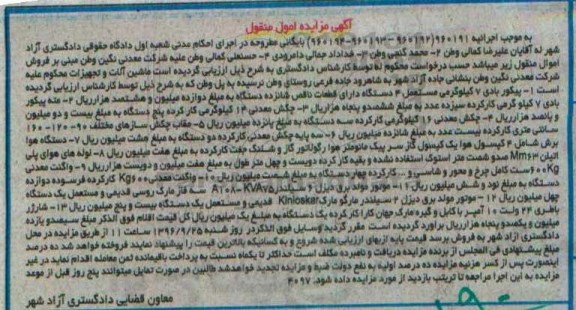 آگهی مزایده اموال منقول
به موجب اجرائیه ۹۶۰۱۹۱(۹۶۰۱۹۲-۹۶۰۱۹۳-۹۶۰۱۹۴) بایگانی مطروحه در اجرای احکام مدنی شعبه اول دادگاه حقوقی دادگستری آزاد
شهر له آقایان علیرضا کمالی وطن ۲- محمد گنجی وطن ۳- خداداد جمالی دامرودی ۴- حسنعلی کمالی وطن علیه شرکت معدنی نگین وطن مبنی بر فروش
اموال منقول زیر میباشد حسب درخواست محکوم له توسط کارشناس دادگستری به شرح ذیل ارزیابی گردیده است ماشین آلات و تجهیزات محکوم علیه
شرکت معدنی نگین وطن بنشانی جاده آزاد شهر به شاهرود جاده فرعی روستای وطن نرسیده به پل وطن که به شرح ذیل توسط کارشناس ارزیابی گردیده
است ۱- پیکور بادی ۷ کیلوگرمی مستعمل ۴ دستگاه دارای قطعات ناقص شانزده دستگاه به مبلغ دوازده میلیون و هشتصد هزارریال ۲- مته پیکور
بادی ۷ کیلو گرمی کارکرده سیزده عدد به مبلغ ششصدو پنجاه هزارریال ۳- چکش معدنی ۱۴ کیلوگرمی کار کرده پنج دستگاه به مبلغ بیست و دو میلیون
و پانصد هزارریال ۴- چکش معدنی ۱۶ کیلوگرمی کارکرده سه دستگاه به مبلغ پانزده میلیون ریال ۵- عقاب چکش سازهای مختلف ۹۰-۱۲۰-۱۶۰
سانتی متری کارکرده بیست عدد به مبلغ شانزده میلیون ریال ۶- سه پایه چکش معدنی کارکرده دو دستگاه به مبلغ هشت میلیون ریال ۷- دستگاه هوا
برش شامل ۴ کپسول هوا یک کپسول گاز سر پیک مانومتر هوا رگولاتور گاز و شلنگ جفت کارکرده به مبلغ هفت میلیون ریال ۸- لوله های هوای پلی
اتیلن Mm۶۳ صدو شصت متر استوک استفاده نشده و بقیه کار کرده دویست و چهل متر طول به مبلغ هفت میلیون و دویست هزارریال ۹- واگنت معدنی
Kg۶۰۰ ست کامل چرخ و محور و شاسی و... کارکرده چهار دستگاه به مبلغ شصت میلیون ریال ۱۰- واگنت معدنی Kg۶۰۰ کارکرده فرسوده دوازده
دستگاه به مبلغ نود و شش میلیون ریال ۱۱- موتور مولد برق دیزل ۶ سیلندر KVA۷۵-A۱۰۸ سه فاز مارک روسی قدیمی و مستعمل یک دستگاه
چهل میلیون ریال ۱۲- موتور مولد برق دیزل ۲ سیلندر مارگو مارک Kinloskar قدیمی و مستعمل یک دستگاه بیست و پنج میلیون ریال ۱۳- شارژر
باطری ۲۴ ولت ۱۰ آمپر با کابل و گیره مارک جهان کار کرده یک دستگاه به مبلغ یک میلیون ریال کل قیمت اقلام فوق الذکر مبلغ سیصدو یازده
میلیون و یکصدو پنجاه هزارریال برآورد گردیده است. مقرر گردید وسایل فوق الذکر در روز شنبه ۱۳۹۶/۹/۲۵ ساعت ۱۱ از طریق مزایده در محل
دادگستری آزاد شهر به فروش برسد قیمت پایه ازبهای ارزیابی شده شروع و به کسانیکه بالاترین قیمت را پیشنهاد نمایند فروخته خواهد شد ده درصد
مبلغ پیشنهادی فی المجلس از برنده مزایده دریافت و نامبرده مکلف است حداکثر تا یکماه نسبت به پرداخت باقیمانده ثمن معامله اقدام نماید در غیر
اینصورت پس از کسر هزینه مزایده ده درصد اولیه به نفع دولت ضبط و مزایده تجدید خواهدشد طالبین در صورت تمایل میتوانند پنج روز قبل از موعد
مزایده به این اجرا مراجعه تا ترتیب بازدید از مورد مزایده داده شود. ۴۰۹۷
معاون قضایی دادگستری آزاد شهر